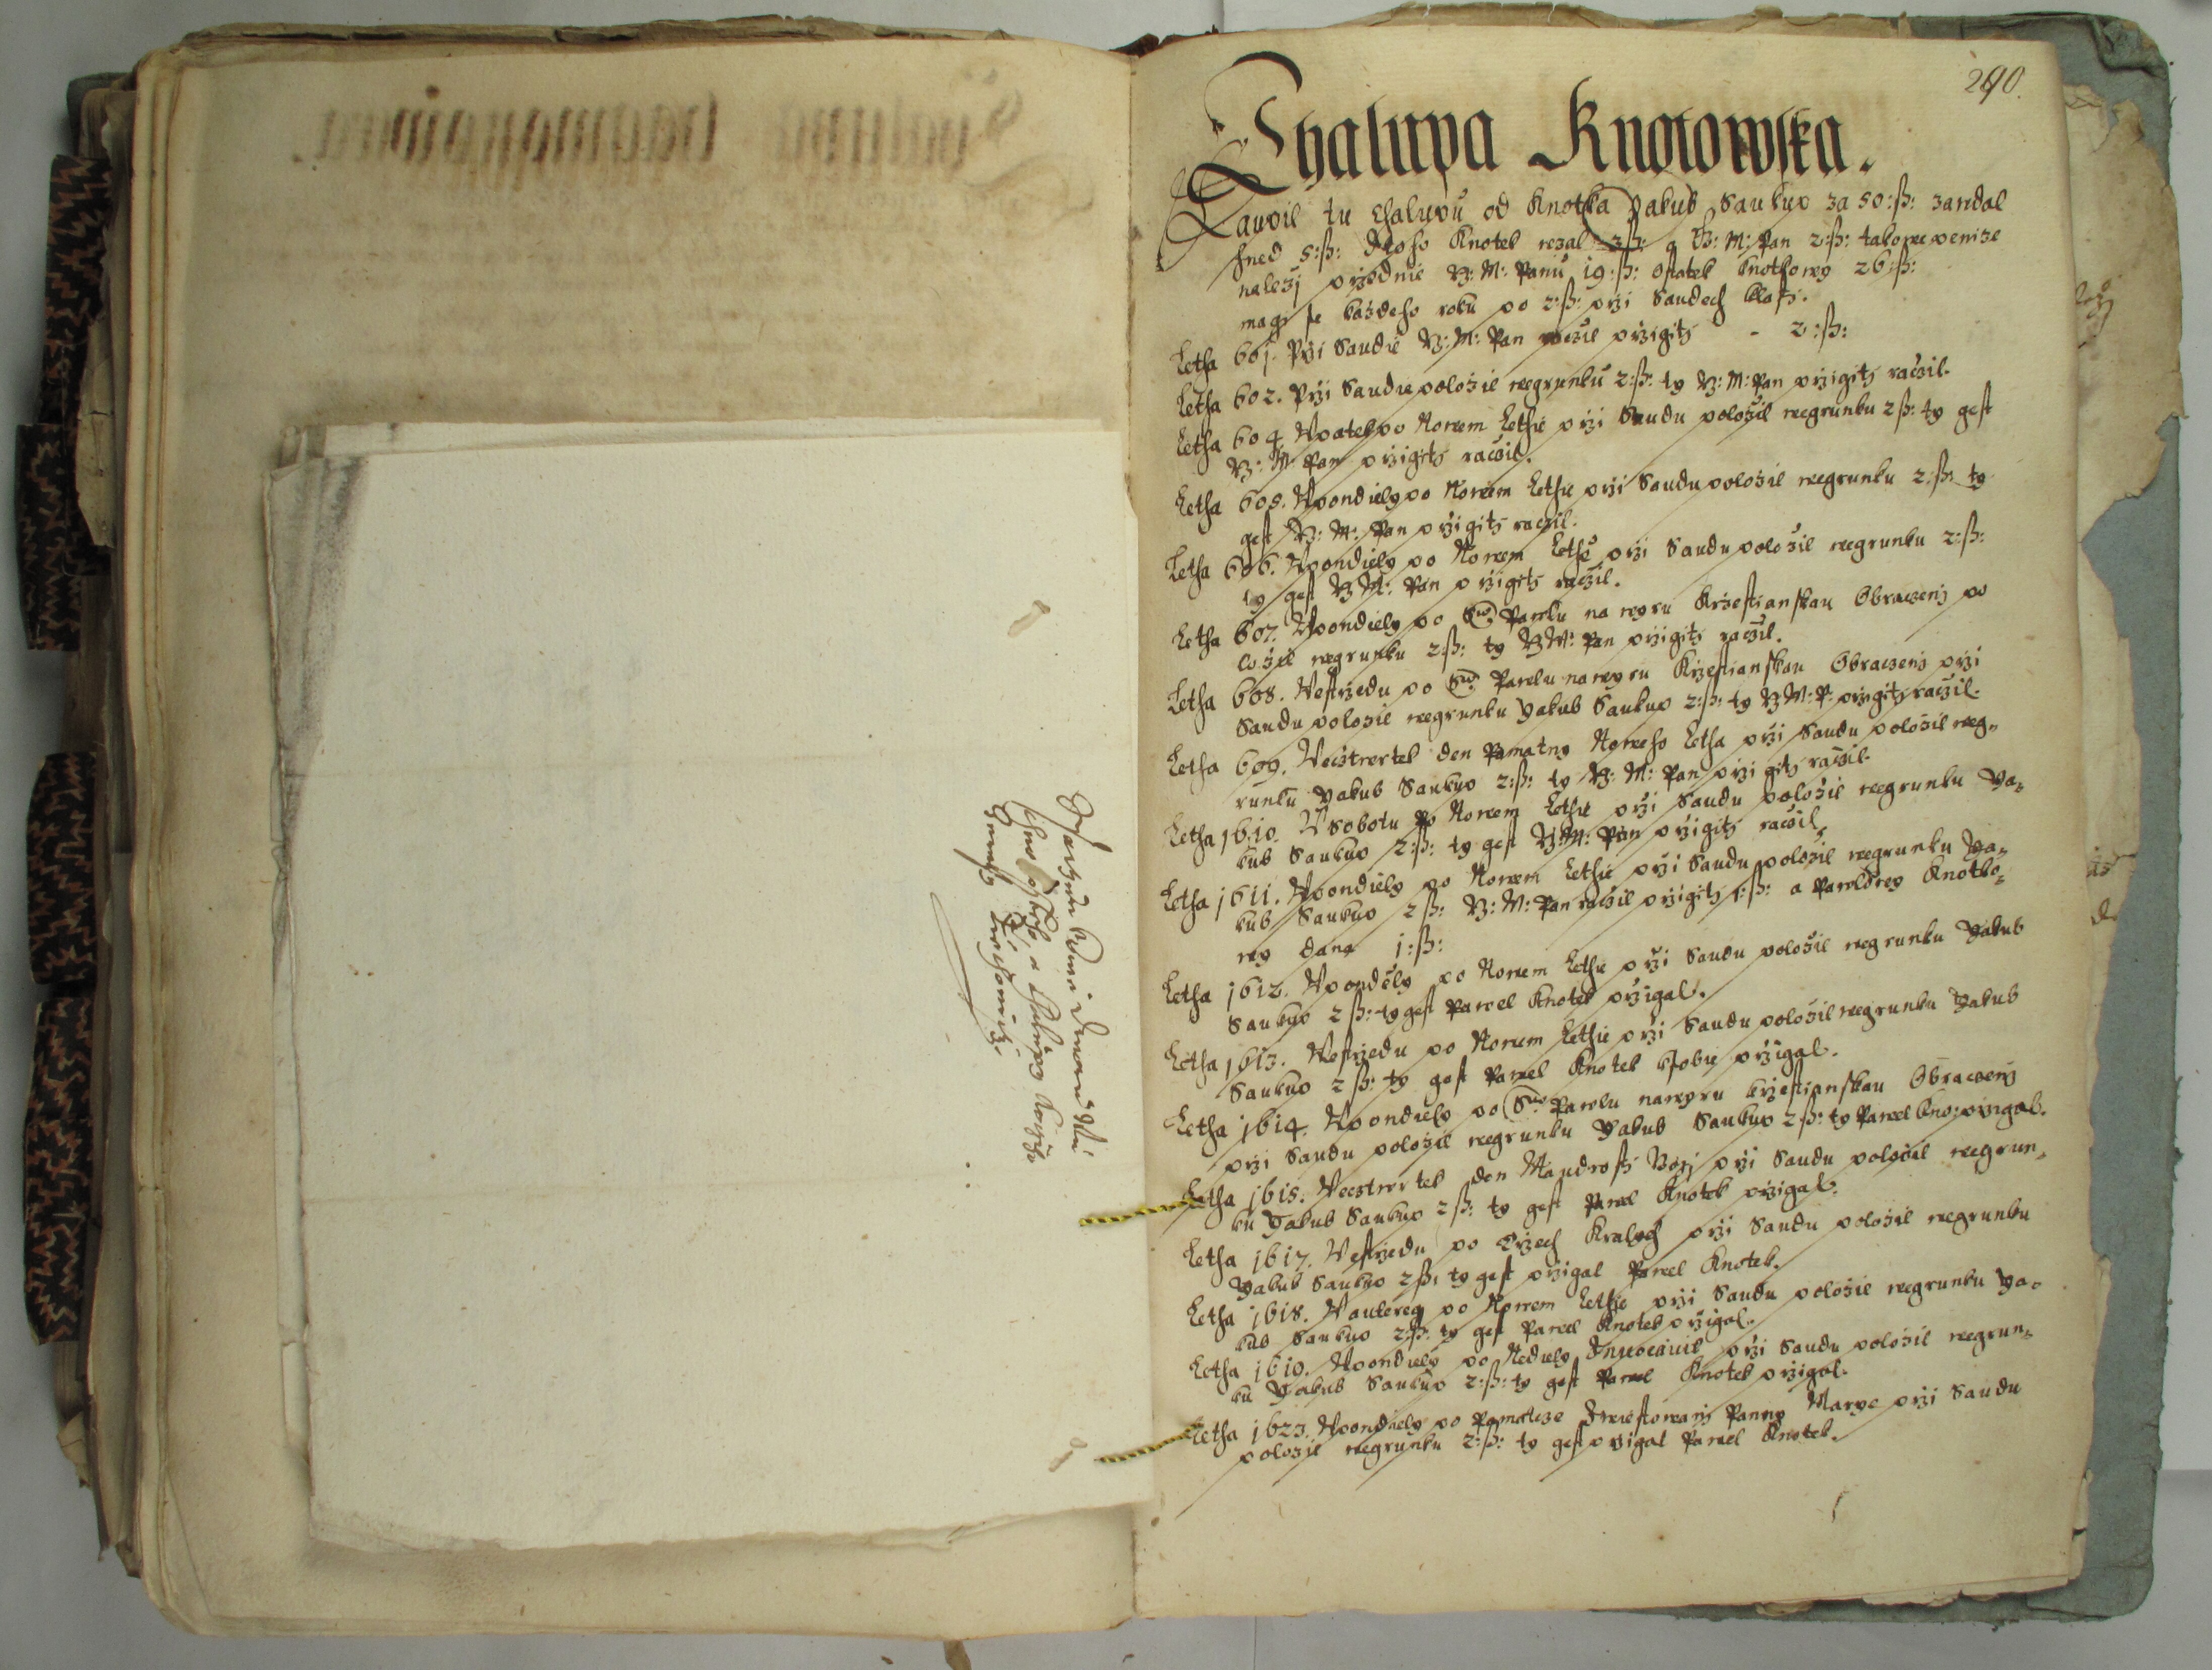 290.
Chalupa Knotowska.
Kaupil tu Chalupu od Knotka Yakub Saukup za 50:ß: zawdal
hned 5:ß: z toho Knotek wzal 3ß: a G: M: Pan 2:ß: tak penize
nalezi przednie G: M: Panu 19:ß: ostatek knotkowy 26:ß:
magi se každeho roku po 2:ß: przi Saudech klasti.
Letha 601. Przi Saudie G: M: Pan raczil przigiti - 2:ß:
Letha 602. Przi Saudie položil wegrunku 2:ß: ty G: M: Pan przigiti raczil.
Letha 604. Wpatek po Nowem Lethie przi Saudu položil wegrunku 2ß: ty gest
G: M: Pan przigiti raczil.
Letha 605. Wpondiely po Nowem Lethie przi Saudu položil wegrunku 2:ß: ty
gest G: M: Pan przigiti raczil.
Letha 606. Wpondiely po Nowem Lethie przi Saudu položil wegrunku 2:ß:
ty gest G M: Pan przigiti raczil.
Letha 607. Wpondiely po Sw: Pawlu na wyru Krzestianskau Obraczeni po
ložil wegrunku 2:ß: ty G M: Pan przigiti raczil.
Letha 608. Westrzedu po Sw: Pawlu na wyru Krzestianskau Obraczeni przi
Saudu položil wegrunku Yakub Saukup 2:ß: ty G M: P: przigiti raczil.
Letha 609. Wecztwrtek den Pamatny Noweho Letha przi Saudu položil weg-
runku Yakub Saukup 2:ß: ty G: M: Pan przigiti raczil.
Letha 1610. W Sobotu po Nowem Lethie przi Saudu položil wegrunku Ya-
kub Saukup 2:ß: ty gest G: M: Pan przigiti raczil.
Letha 1611. Wpondiely po Nowem Lethie przi Saudu položil wegrunku Ya-
kub Saukup 2ß: G: M: Pan raczil przigiti 1:ß: a Pawlowy Knotko-
wy dana 1:ß:
Letha 1612. Wpondiely po Nowem Lethie przi Saudu položil wegrunku Yakub
Saukup 2ß: ty gest Pawel Knotek przigal.
Letha 1613. Westrzedu po Nowem Lethie przi Saudu položil wegrunku Yakub
Saukup 2ß: ty gest Pawel Knotek ksobie przigal.
Letha 1614. Wpondiely po Sw: Pawlu na wyru krzestianskau Obraczeni
przi Saudu položil wegrunku Yakub Saukup 2ß: ty Pawel Kno: przigal.
Letha 1615. Wecztwrtek den Maudrosti Boži przi Saudu položil wegrun-
ku Yakub Saukup 2ß: ty gest Pawel Knotek przigal.
Letha 1617. Westrzedu po Trzech Kralych przi Saudu položil wegrunku
Yakub Saukup 2ß: ty gest przigal Pawel Knotek.
Letha 1618. Wauterey po Nowem Lethie przi Saudu položil wegrunku Ya-
kub Saukup 2:ß: ty gest Pawel Knotek przigal.
Letha 1619. Wpondiely po Nediely Invocavit przi Saudu položil wegrun-
ku Yakub Saukup 2:ß: ty gest Pawel Knotek przigal.
Letha 1623. Wpondiely po Pamatcze Zwiestowani Panny Marye przi Saudu
položil wegrunku 2:ß: ty gest przigal Pawel Knotek.